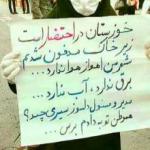 خوزستان در احتضار است
زیر خاک مدفون شدم
شوش اهواز هوا ندارد...
برق ندارد، آب ندارد...
مدیر و مسئول دلسوز سیری چند؟
هموطن تو به دادم برس...